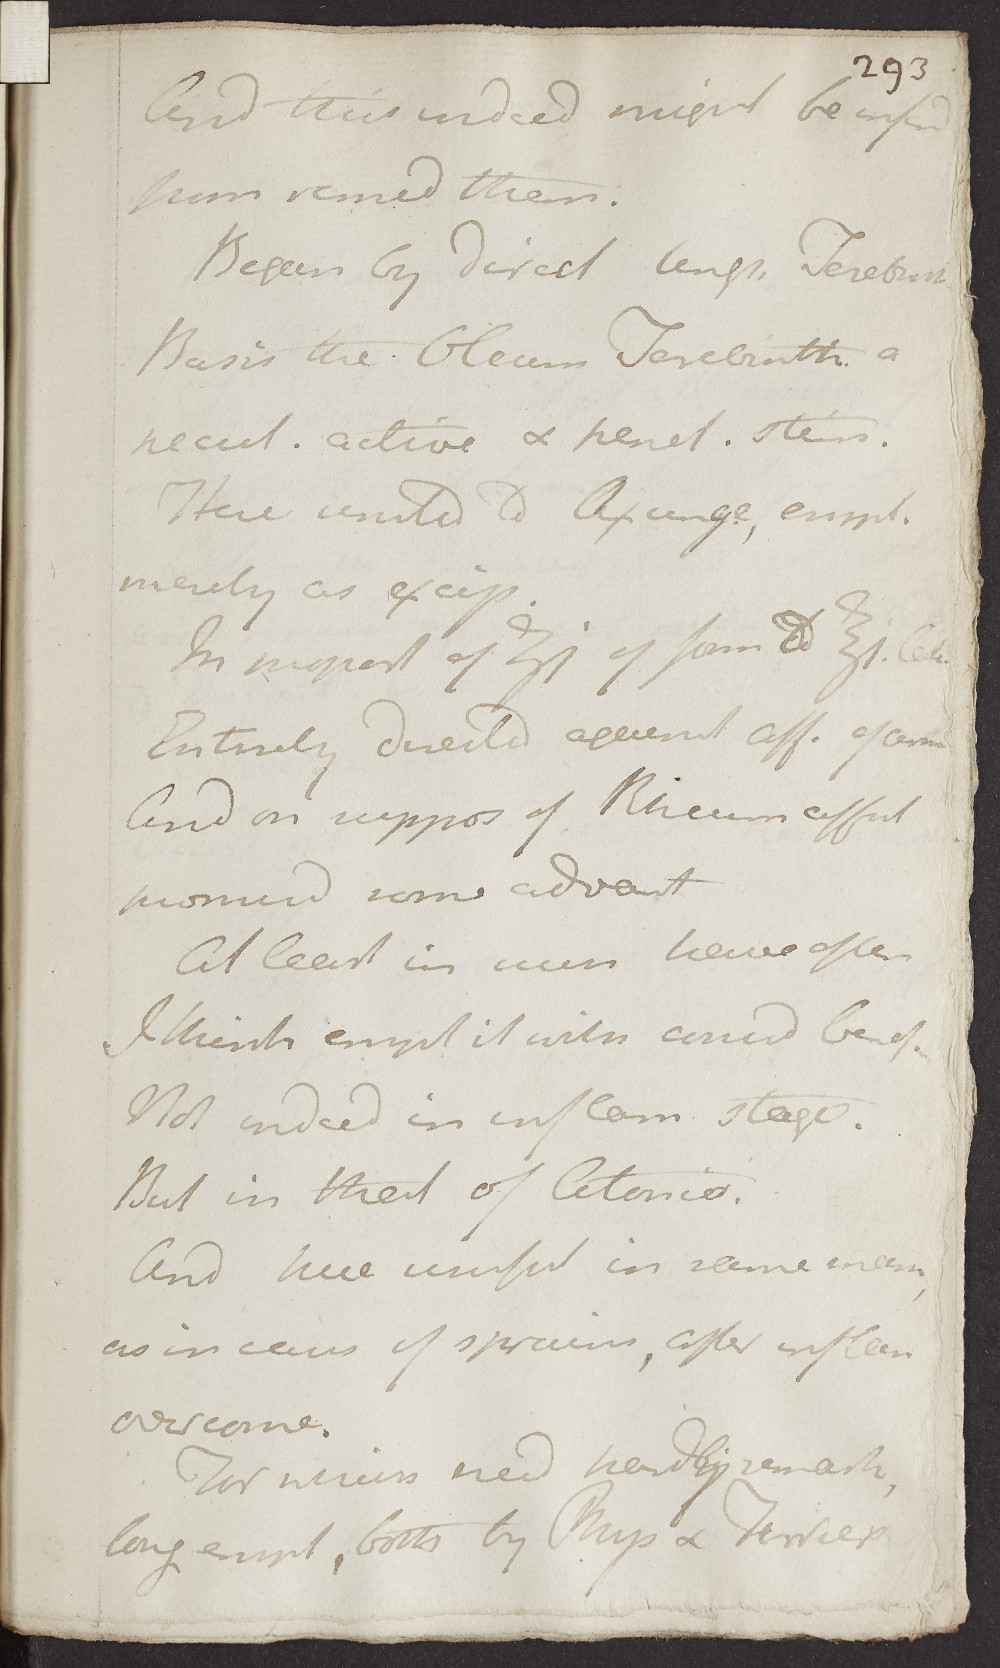 293
And this indeed might be infer'd
from remed them.
Began by direct ungt. Terebinth
Basis the Oleum Terebinth. a
pecul. active & penet. stim.
Here united to Axunge, empl.
merely as excip.
In proport of ʒj of form to ℥j.
Entirely directed against aff. of arm
And on suppos of Rheum affect
promised some advant
At least in such have often
I think empl it with consid benef.
Not indeed in inflam stage.
But in that of Atonic.
And here useful in same mann,
as in cases of sprains, after inflam
overcome.
For which need hardly remark,
long empl, both by Phys &